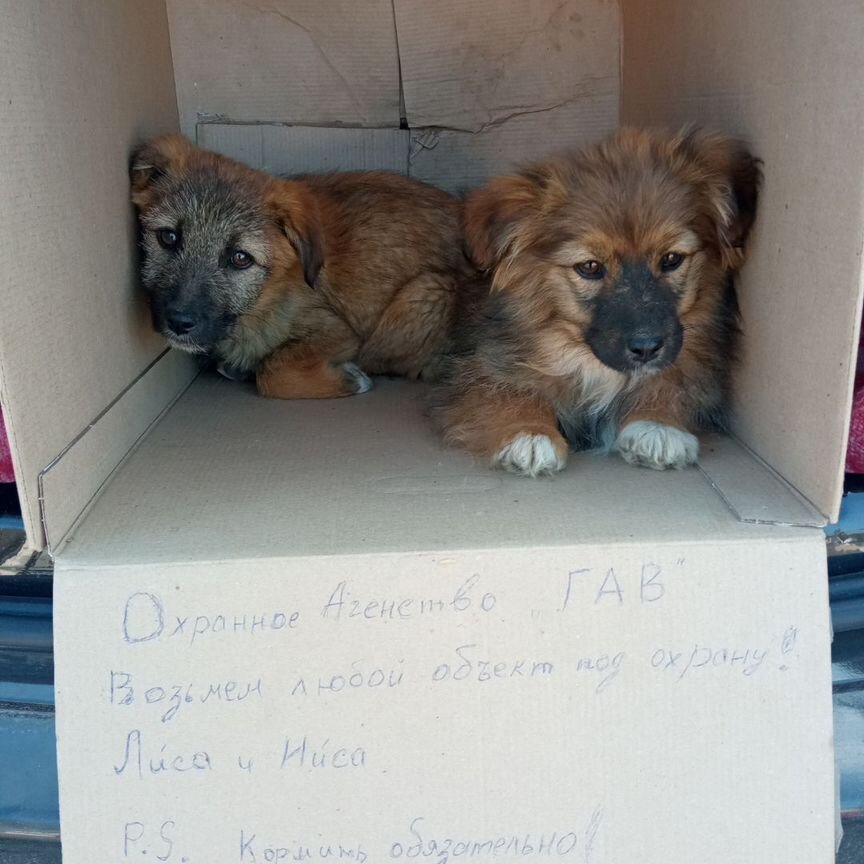 Охранное Агенство „ГАВ"
Возьмем любой объект под охрану!
Ли́са и Ни́са
P.S. Кормить обязательно!